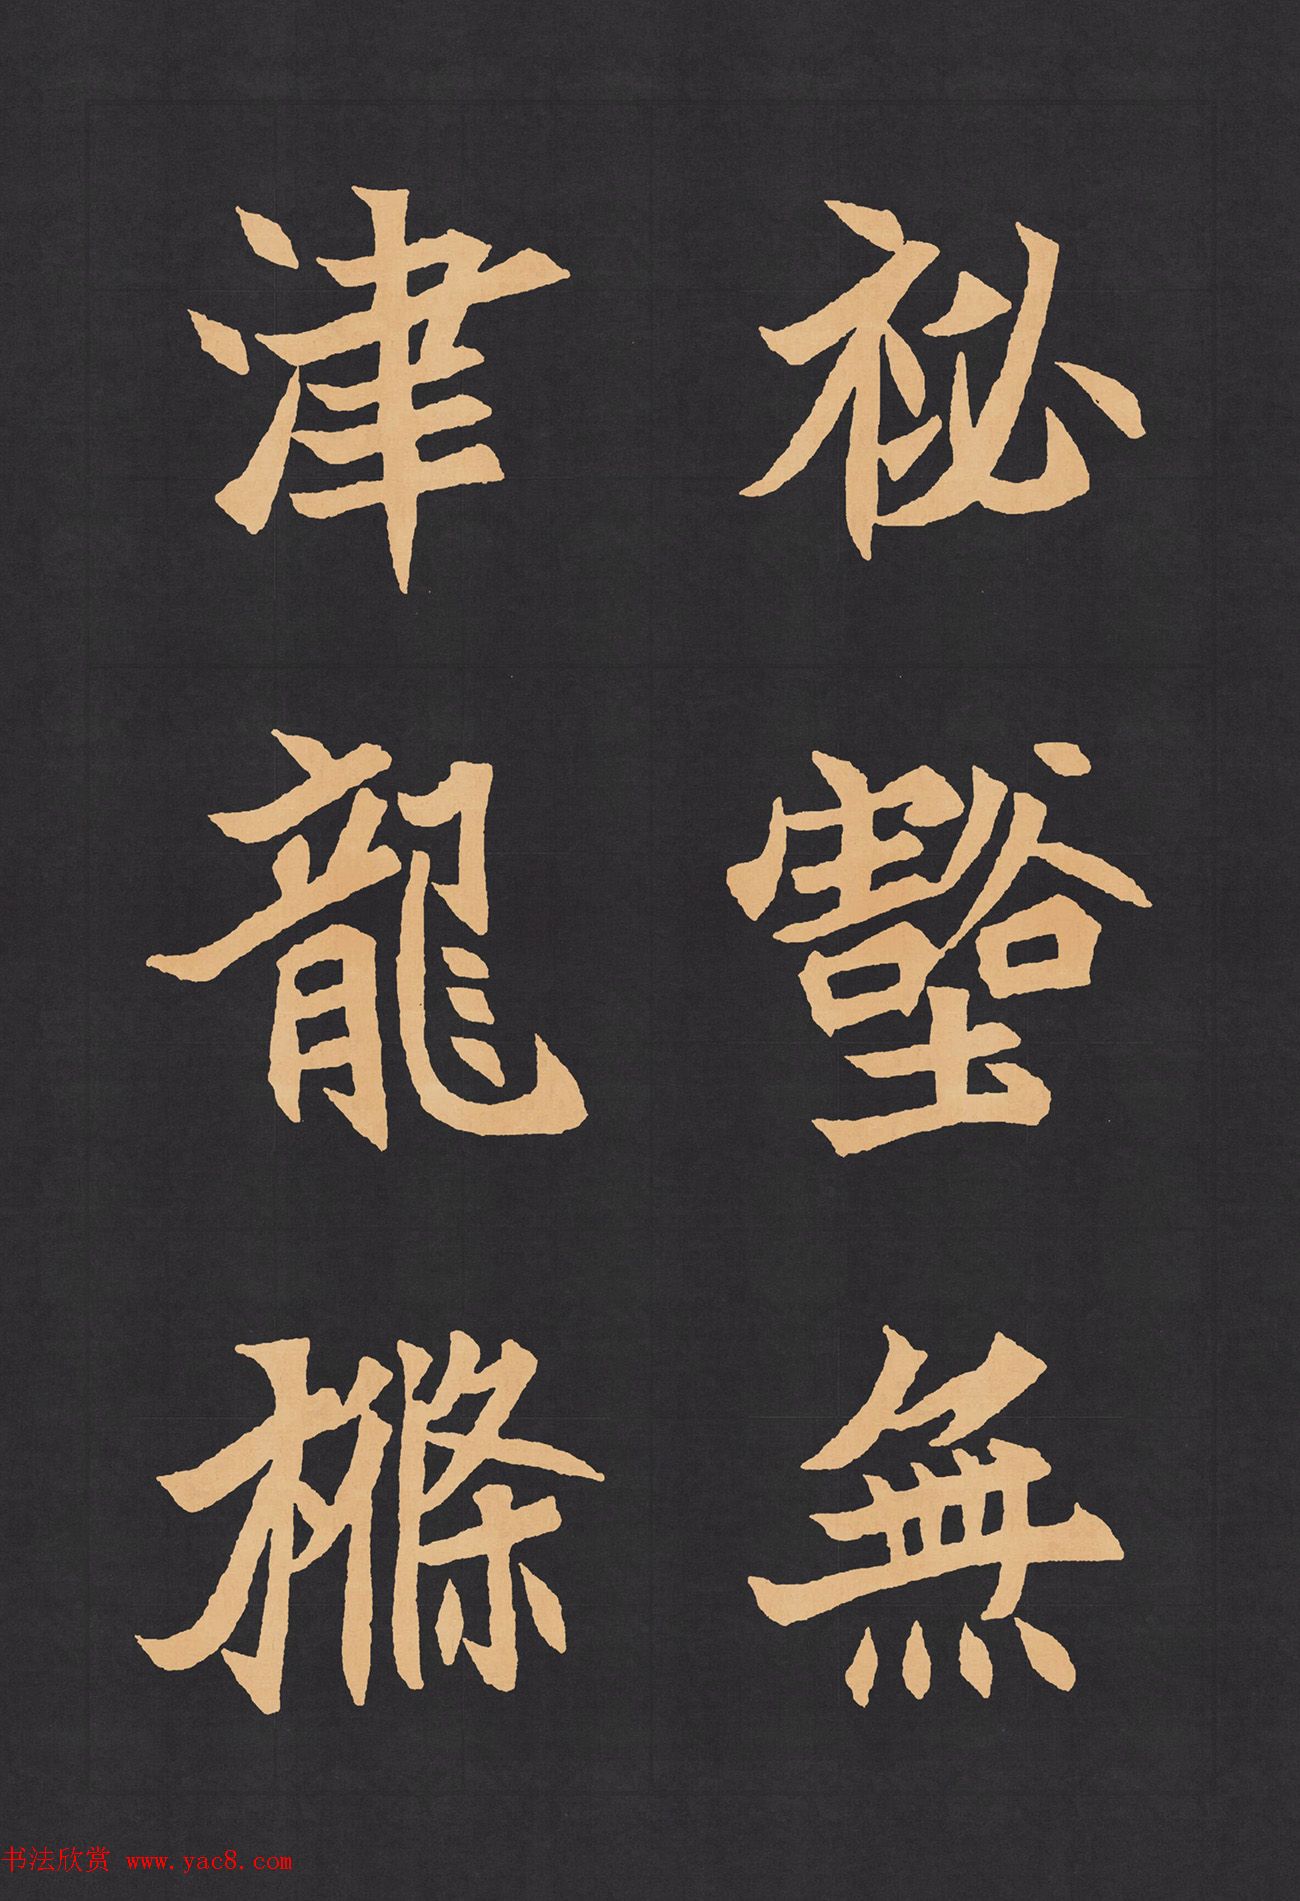 祕壑無
津龍樤
书法欣赏 www.yac8.com